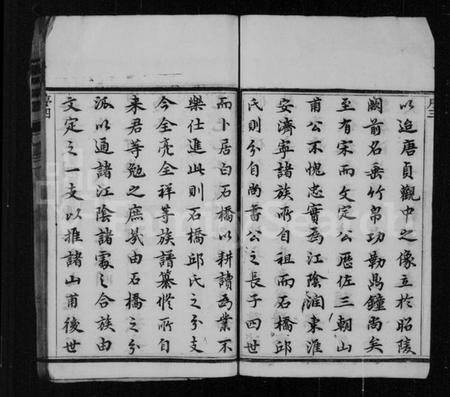 序三
以追唐貞觀中之像立於昭陵
闕前名垂竹帛功勒鼎鐘尚矣
至有宋而文定公歷佐三朝山
甫公不愧忠實為江陰潤東淮
安濟寧諸族所自祖而石橋邱
氏則分自尚書公之長子四世
而卜居白石橋以耕讀為業不
樂仕進此則石橋邱氏之分支
今全亮全祥等族譜纂修所自
来君等勉之庶幾由石橋之分
派以通諸江陰諸處之合族由
文定之一支以推諸山甫後世
序四